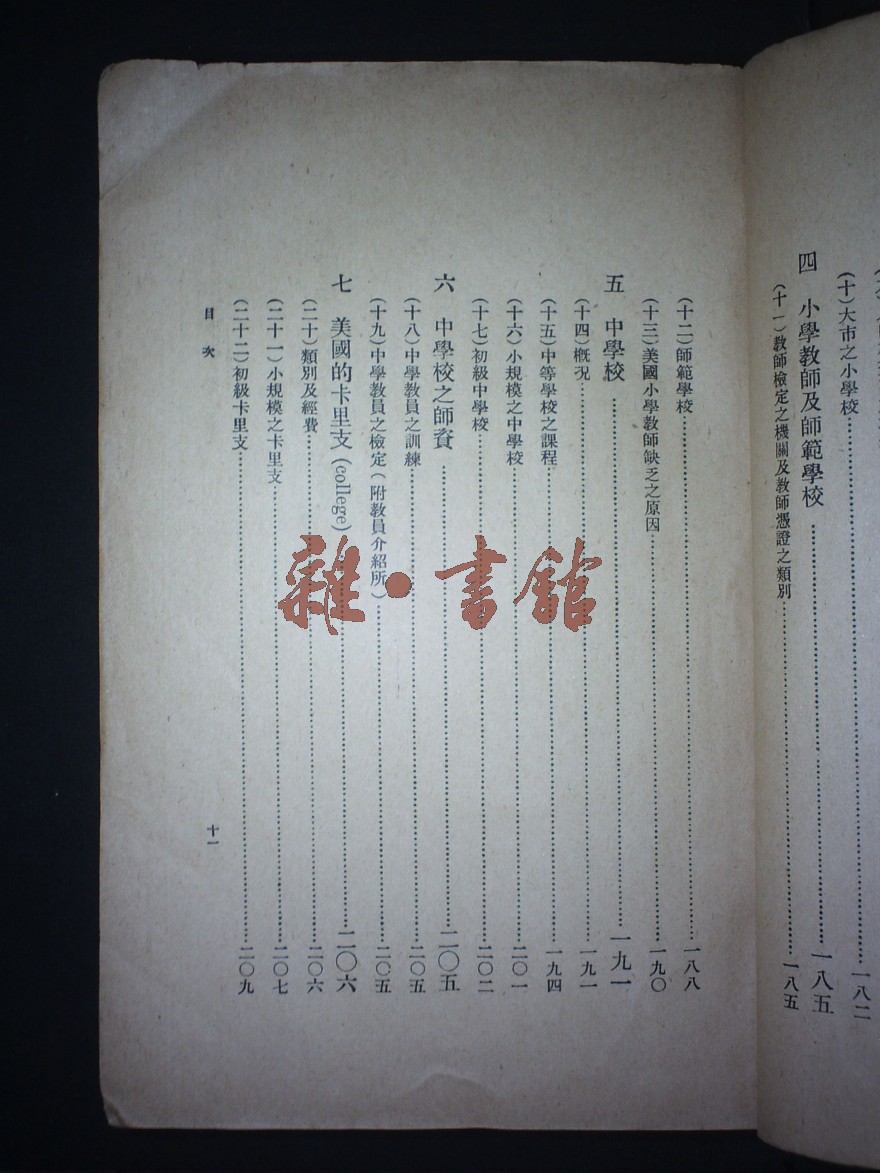 (十)大市之小學校……一八二
四 小學教師及師範學校……一八五
(十一)教師檢定之機關及教師憑證之類別……一八五
(十二)師範學校……一八八
(十三)美國小學教師缺乏之原因……一九〇
五 中學校……一九一
(十四)概況……一九一
(十五)中等學校之課程……一九四
(十六)小規模之中學校……二〇一
(十七)初級中學校……二〇二
六 中學校之師資……二〇五
(十八)中學教員之訓練……二〇五
(十九)中學教員之檢定(附教員介紹所)……二〇五
七 美國的卡里支(college)……二〇六
(二十)類別及經費……二〇六
(二十一)小規模之卡里支……二〇七
(二十二)初級卡里支……二〇九
目次
十一
雜·書館